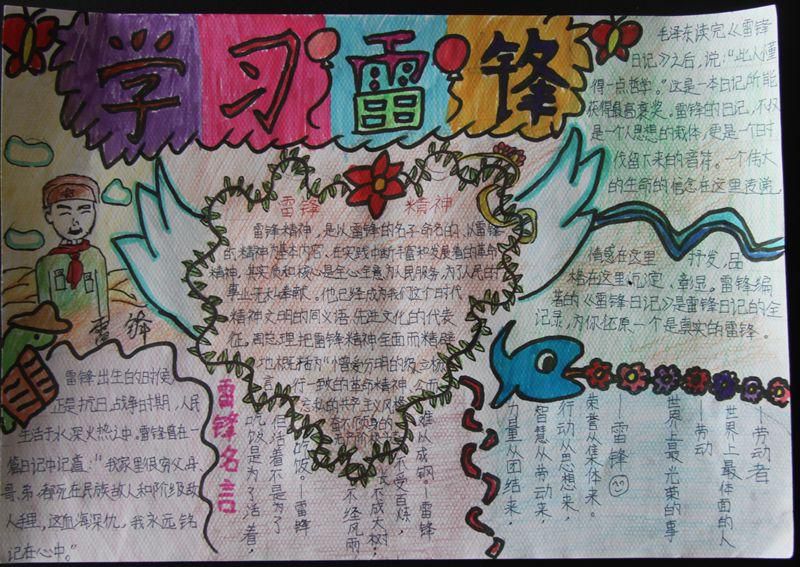 学习雷锋
毛泽东读完《雷锋
日记》之后,说:"此人懂
得一点哲学。"这是一本日记所能
获得最高褒奖。雷锋的日记,不仅
是一个人思想的载体,更是一个时
代留下来的音符。一个伟大
的生命的信念在这里表露,
情感在这里 抒发,品
格在这里沉淀,彰显。雷锋编
著的《雷锋日记》是雷锋日记的全
记录,为你还原一个最真实的雷锋。
雷锋 精神
雷锋精神,是以雷锋的名字命名的,以雷锋
的精神为基本内容,在实践中断丰富和发展着的革命
精神,其实质和核心是全心全意为人民服务,为了人民的
事业无私奉献。他已经成为我们这个时代
精神文明的同义语、先进文化的代表
征。周总理把雷锋精神全面而精辟
地概括为"憎爱分明的
行一致的革命精神,公而
忘私的共产主义风格
雷锋
雷锋出生的时候,
正是抗日战争时期,人民
生活于水深火热之中。雷锋曾在一
篇日记中记着:"我家里很穷,父、母、
哥、弟都死在民族敌人和阶级敌
人手里,这血海深仇,我永远铭
记在心中。"
雷锋名言
吃饭是为了活着,
但活着不是为了
吃饭。——雷锋
不经风雨,
长不成大树;
不受百炼,
难以成钢。——雷锋
力量从团结来,
智慧从劳动来,
行动从思想来,
荣誉从集体来。
——雷锋
世界上最光荣的事
——劳动
世界上最体面的人
——劳动者